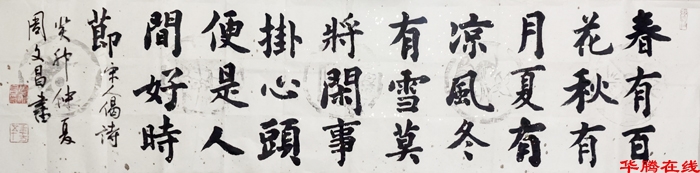 春有百
花秋有
月夏有
凉風冬
有雪莫
將閑事
掛心頭
便是人
間好時
節
宋人偈詩
癸卯仲夏
周文昌書
华腾在线